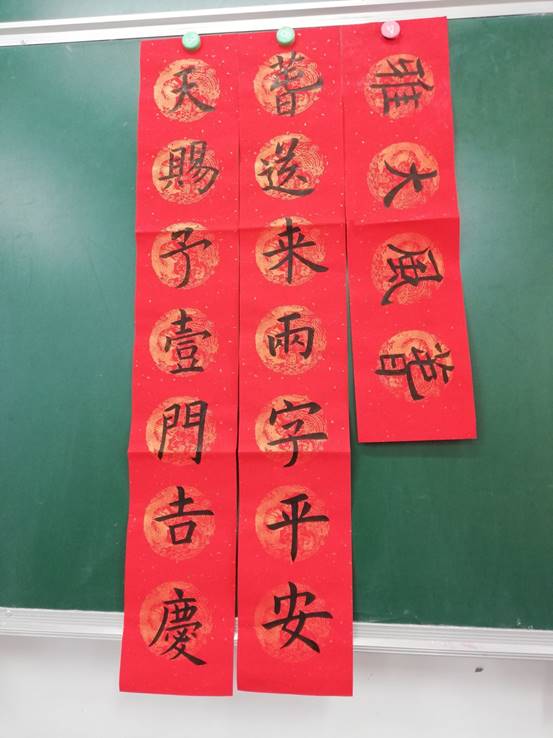 萅風大雅
萅送来兩字平安
天賜予壹門吉慶